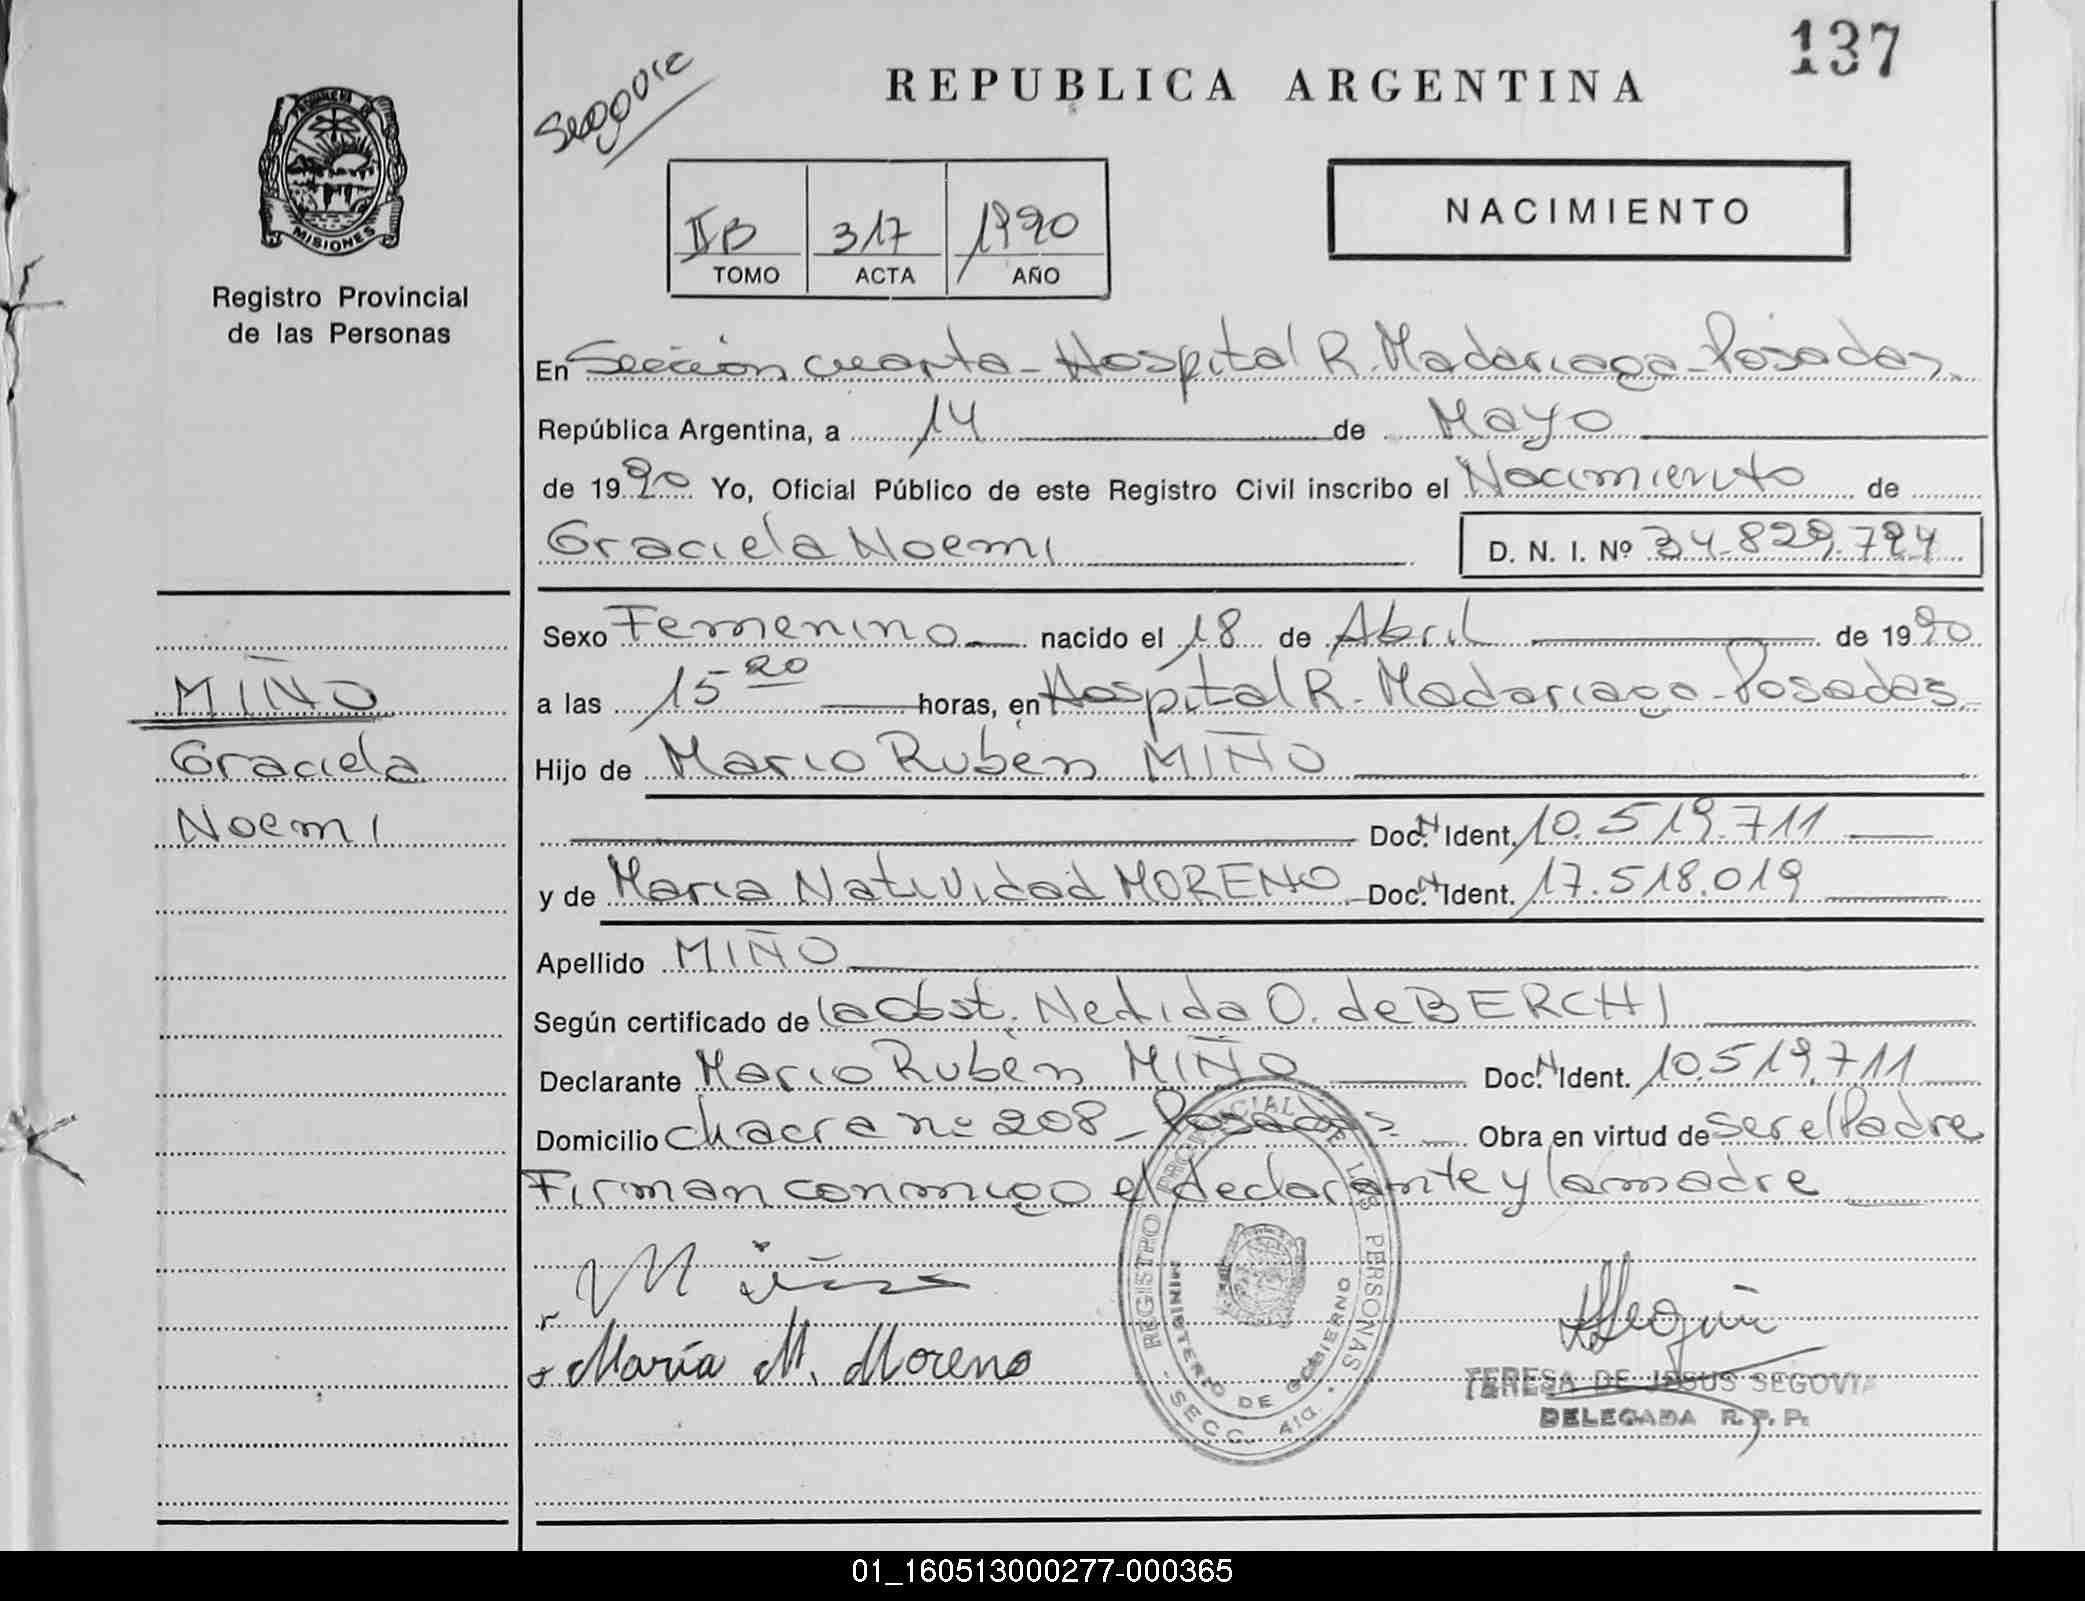 137
Segovia
REPUBLICA ARGENTINA
MISIONES
Registro Provincial
de las Personas
IIB 317 1990
TOMO ACTA AÑO
NACIMIENTO
En Sección cuarta - Hospital R. Madariaga - Posadas.
República Argentina, a 14 de Mayo
de 1990 Yo, Oficial Público de este Registro Civil inscribo el Nacimiento de
Graciela Noemi D. N. I. Nº 34.829.724
Sexo Femenino nacido el 18 de Abril de 1990
MIÑO
a las 15 20 horas, en Hospital R. Madariaga - Posadas.
Graciela
Hijo de Mario Rubén MIÑO
Noemi
Doc. N Ident. 10.519.711
y de Maria Natividad MORENO Doc. N Ident. 17.518.019
Apellido MIÑO
Según certificado de la Obst. Nedida O. de BERCHI
Declarante Mario Rubén MIÑO Doc. N Ident. 10.519.711
Domicilio Chacra nº 208 - Posadas Obra en virtud de ser el Padre
Firman conmigo el declarante y la madre
María M. Moreno
REGISTRO PROVINCIAL DE LAS PERSONAS
MINISTERIO DE GOBIERNO
SECC. 4ta.
TERESA DE JESUS SEGOVIA
DELEGADA R. P. P.
01_160513000277-000365